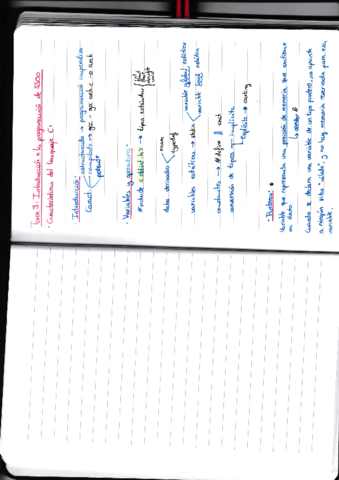 Tema 3. Introducción a la programación de SSOO
· Características del lenguaje C.
· Introducción:
Caract. estructurado → programación imperativa
compilado → gcc - gcc arch.c -o arch
portable
· Variables y operadores:
#include <stdint.h> → tipos estándar
datos derivados enum
typedef
variables estáticas → static variable global estática
variable local estática
constantes → #define ó const
conversión de tipos implícita
explícita → casting
· Punteros:
Variable que representa una posición de memoria que contiene
un dato
Cuando se declara una variable de un tipo puntero, no apunta
a ningún sitio "válido", y no hay memoria reservada para esa
variable.